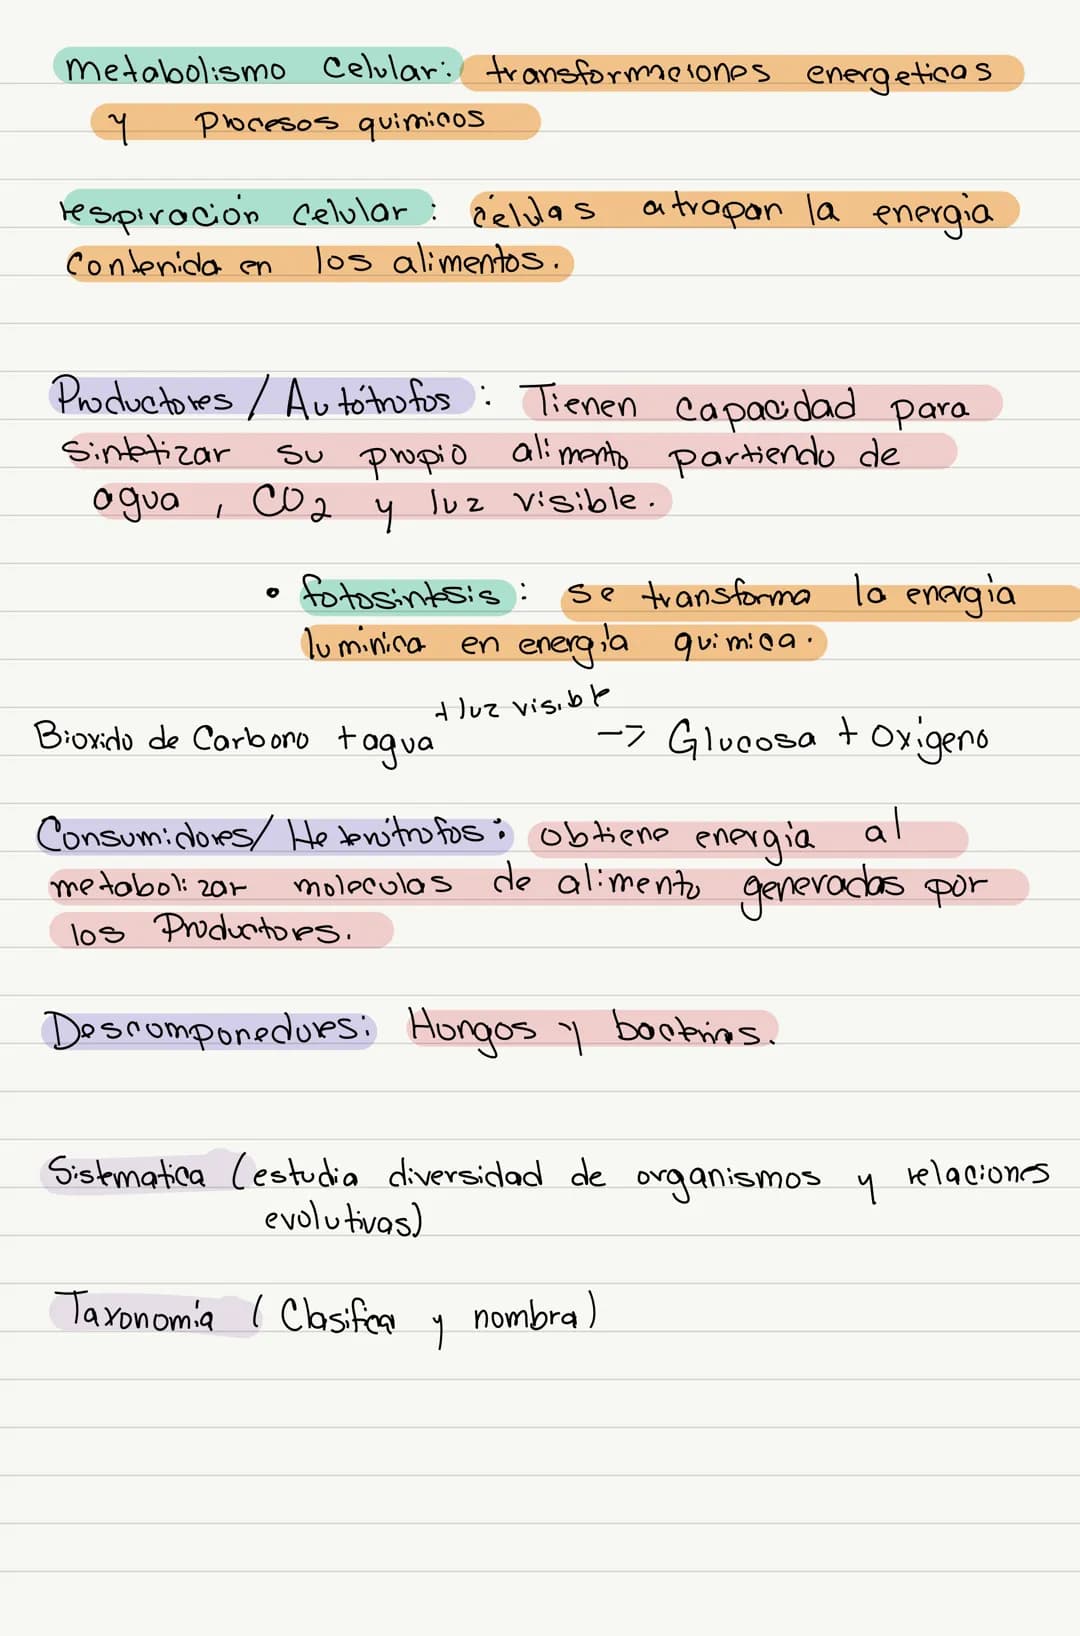 metabolismo Celular: transformaciones energeticas
y Procesos quimicos
respiración Celular: células atrapan la energia
Contenida en los alimentos.
Productores / Autótrofos : Tienen Capacidad para
Sintetizar su propio alimento partiendo de
agua , CO2 y luz visible.
• fotosintesis : se transforma la energia
luminica en energia quimica.
+ luz visible
Bioxido de Carbono + agua -> Glucosa + Oxigeno
Consumidores/ Heterótrofos : obtiene energia al
metabolizar moleculas de alimento generadas por
los Productores.
Descomponedores: Hongos y bacterias.
Sistematica (estudia diversidad de organismos y relaciones
evolutivas)
Taxonomia ( Clasifica y nombra)